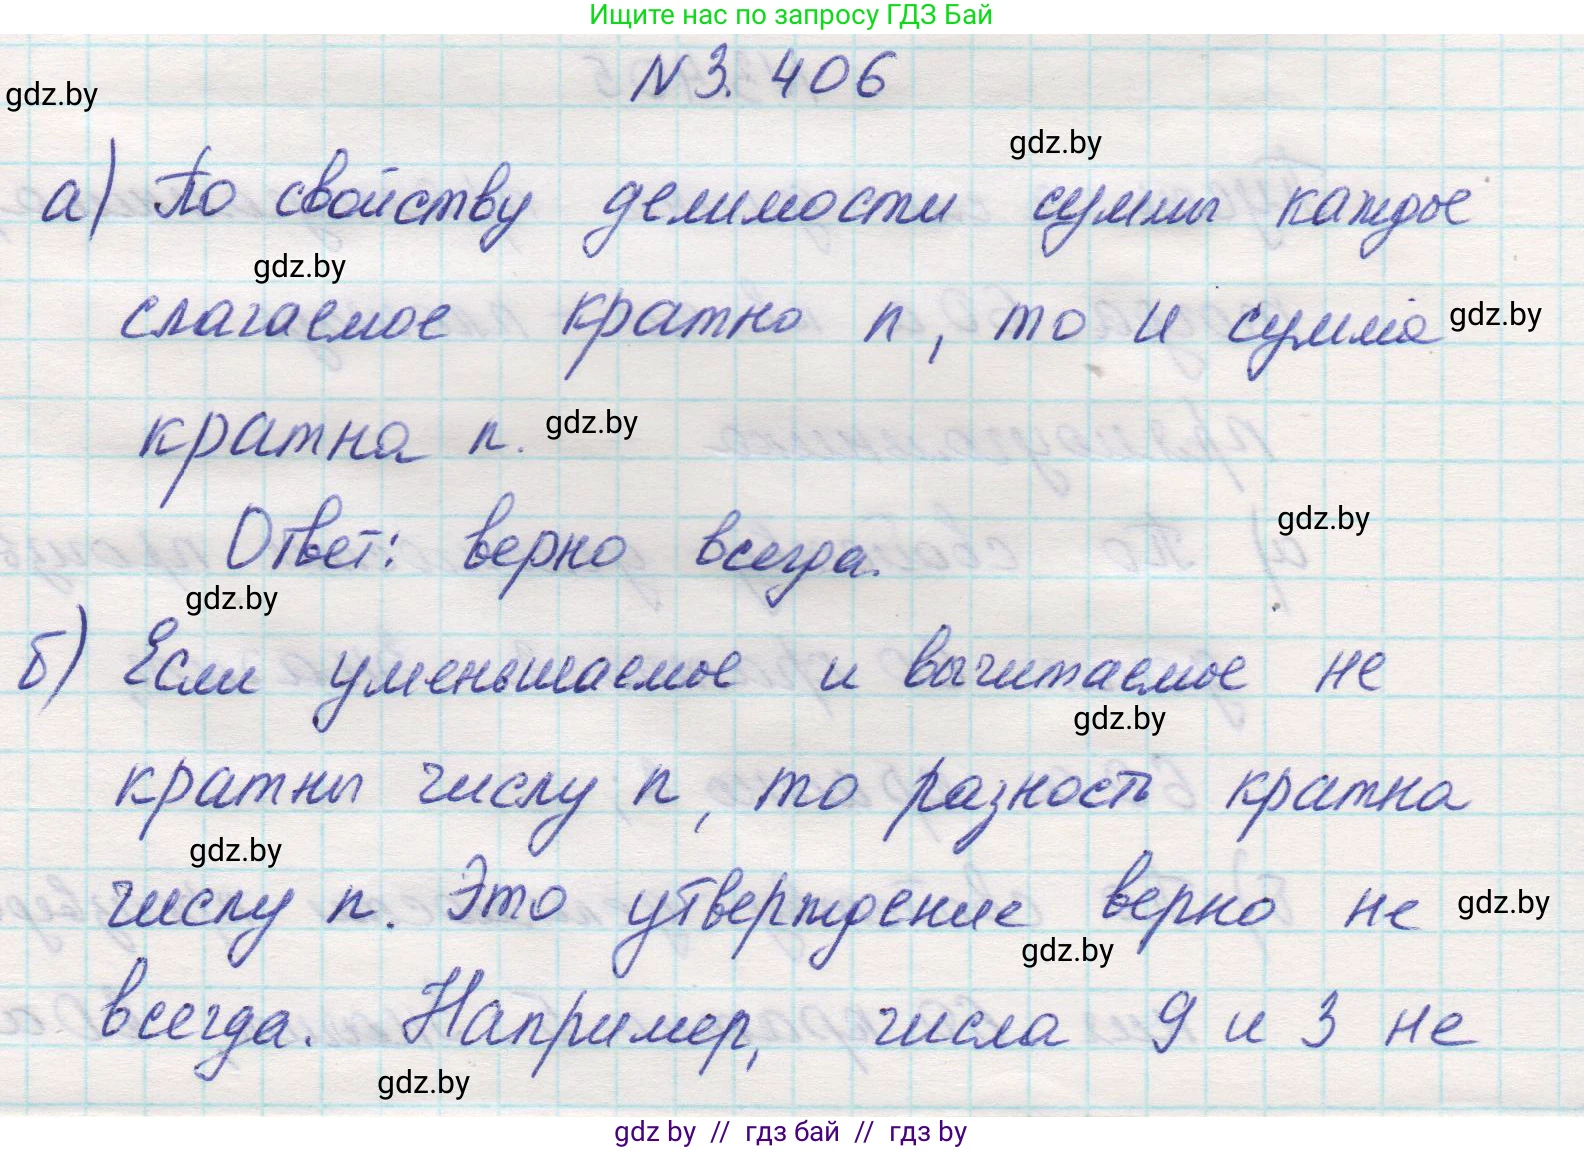 Ищите нас по запросу ГДЗ Бай
N 3.406
gdz.by
gdz.by
а) По свойству делимости суммы каждое
gdz.by
слагаемое кратно n, то и сумма
gdz.by
кратна n.
gdz.by
gdz.by
Ответ: верно всегда.
gdz.by
б) Если уменьшаемое и вычитаемое не
gdz.by
кратны числу n, то разность кратна
gdz.by
числу n. Это утверждение верно не
gdz.by
gdz.by
всегда. Например, числа 9 и 3 не
gdz.by
gdz by // гдз бай // гдз by